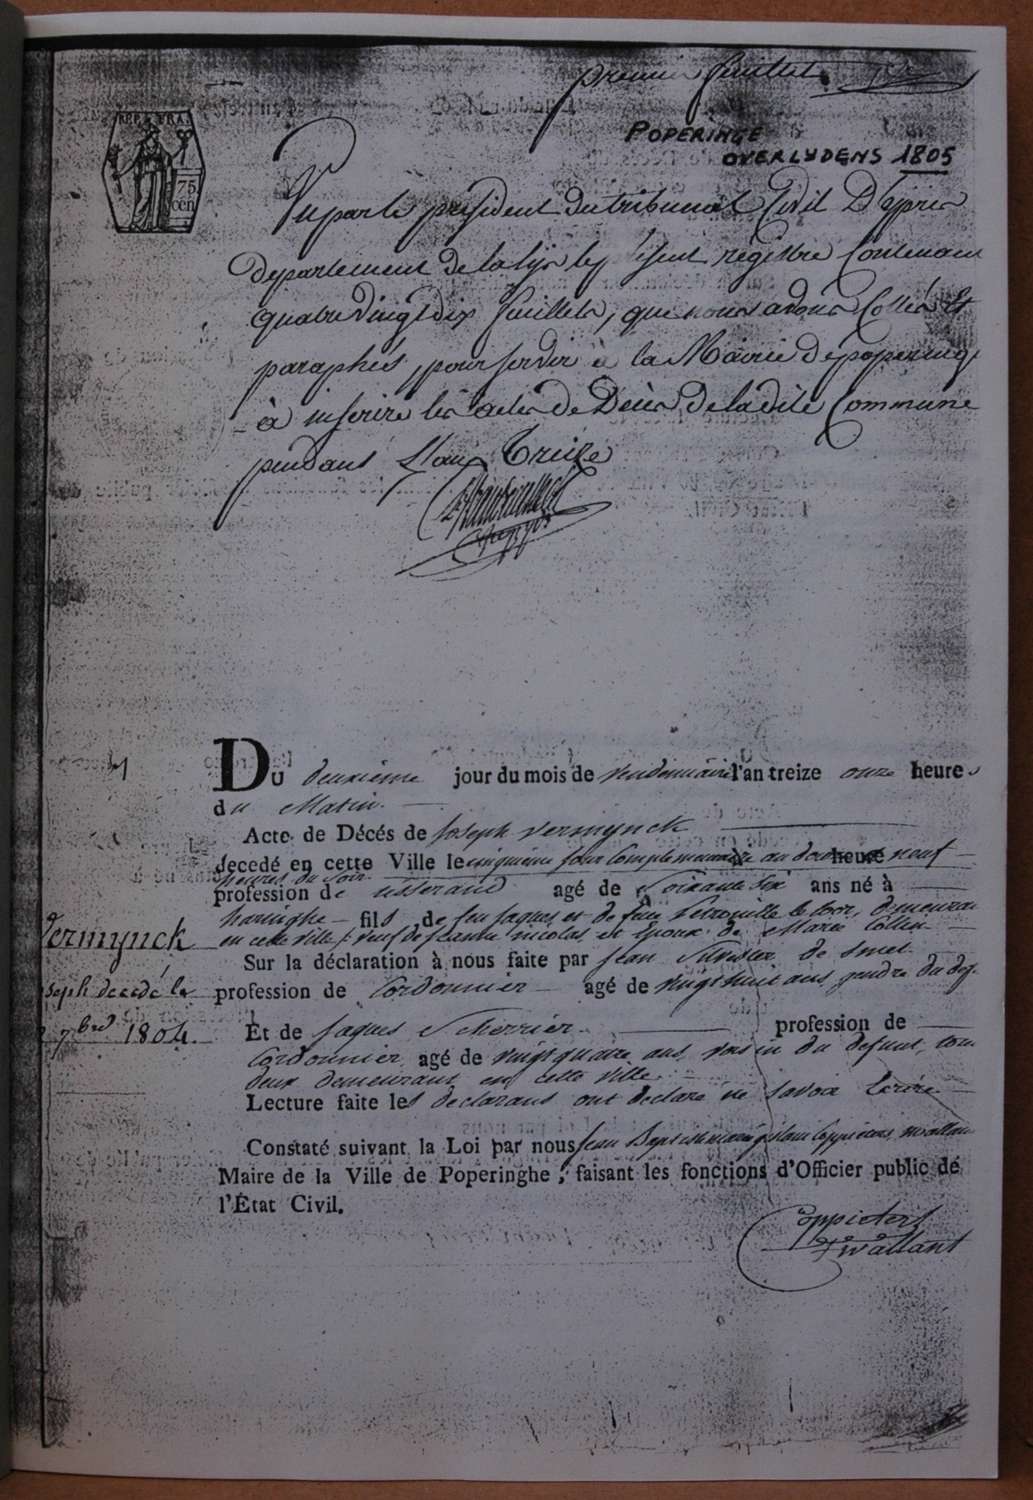 premier feuillet
REP. FRA.
75
cen
POPERINGE
OVERLYDENS 1805
Vu par le president du tribunal Civil D'Ypres
departement de la Lys le présent registre Contenant
quatre vingt dix feuillets, que nous avons Cottés Et
paraphés, pour servir à la Mairie de poperinghe
à inscrire les actes de Décès de ladite Commune
pendant L'an Treize
1
DU deuxième jour du mois de vendemiaire l'an treize onze heures
du Matin.
Acte de Décés de Joseph Vermynck
decedé en cette Ville le cinquieme jour complementaire an douze heure neuf
heures du soir
profession de tisserand agé de Soixante six ans né à
haringhe fils de feu Jaques et de feue Petronille le Cocq, demeurant
en cette ville, veuf de Jeanne nicolas et Epoux de Marie Collin
Vermynck
Joseph decedé le
7bre 1804.
Sur la déclaration à nous faite par Jean Silvister de Smet
profession de Cordonnier agé de vingt huit ans gendre du def.
Et de Jaques Scherrier profession de
Cordonnier agé de vingt quatre ans voisin du defunt, tous
deux demeurans en cette ville
Lecture faite les declarans ont declaré ne savoir Ecrire
Constaté suivant la Loi par nous Jean Baptiste Coppieters wallant
Maire de la Ville de Poperinghe, faisant les fonctions d'Officier public de
l'État Civil.
Coppieters
wallant